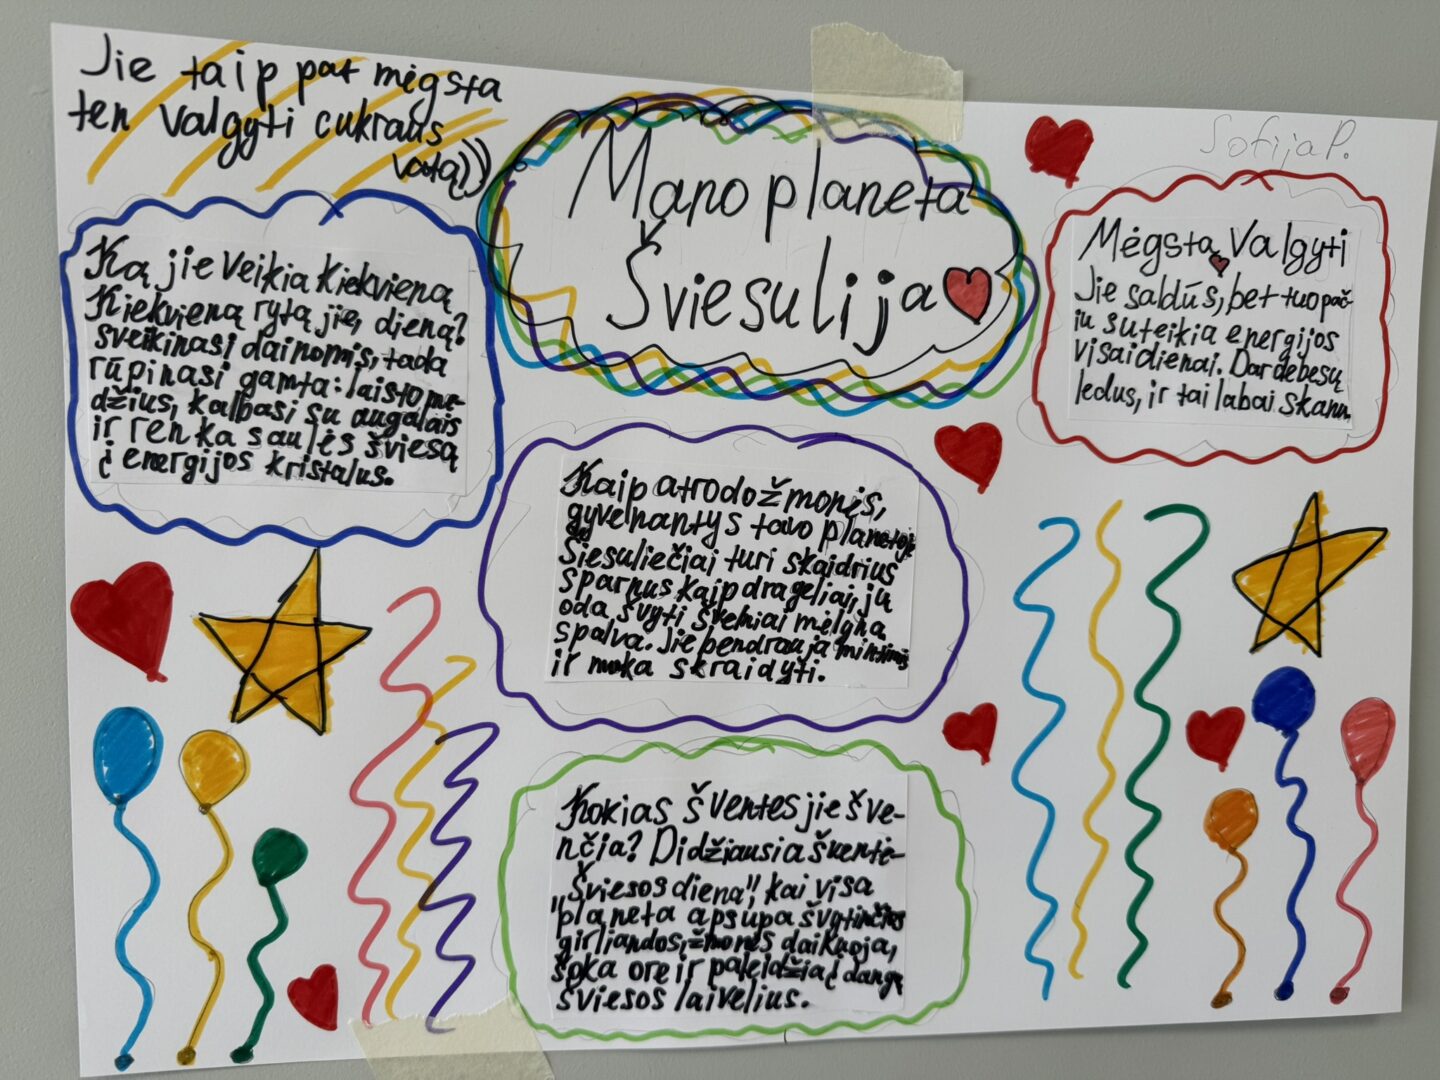 Jie taip pat mėgsta
ten valgyti cukraus
vatą))
Mano planeta
Šviesulija
Sofija P.
Ką jie veikia kiekvieną
Kiekvieną rytą jie, dieną?
sveikinasi dainomis, tada
rūpinasi gamta: laisto me-
džius, kalbasi su augalais
ir renka saulės šviesą
į energijos kristalus.
Mėgsta Valgyti
Jie saldūs, bet tuo pač-
iu suteikia energijos
visai dienai. Dar debesų
ledus, ir tai labai skanu.
Kaip atrodo žmonės,
gyvenantys tavo planetoje
Šiesuliečiai turi skaidrius
sparnus kaip drageliai, jų
oda švyti švelniai mėlyna
spalva. Jie bendrauja mintimis
ir moka skraidyti.
Kokias šventes jie šve-
nčia? Didžiausia šventė-
Šviesos diena", kai visa
"planeta apsupa švytinčios
girliandos, žmonės dainuoja,
šoka ore ir paleidžia į dangų
šviesos laivelius.